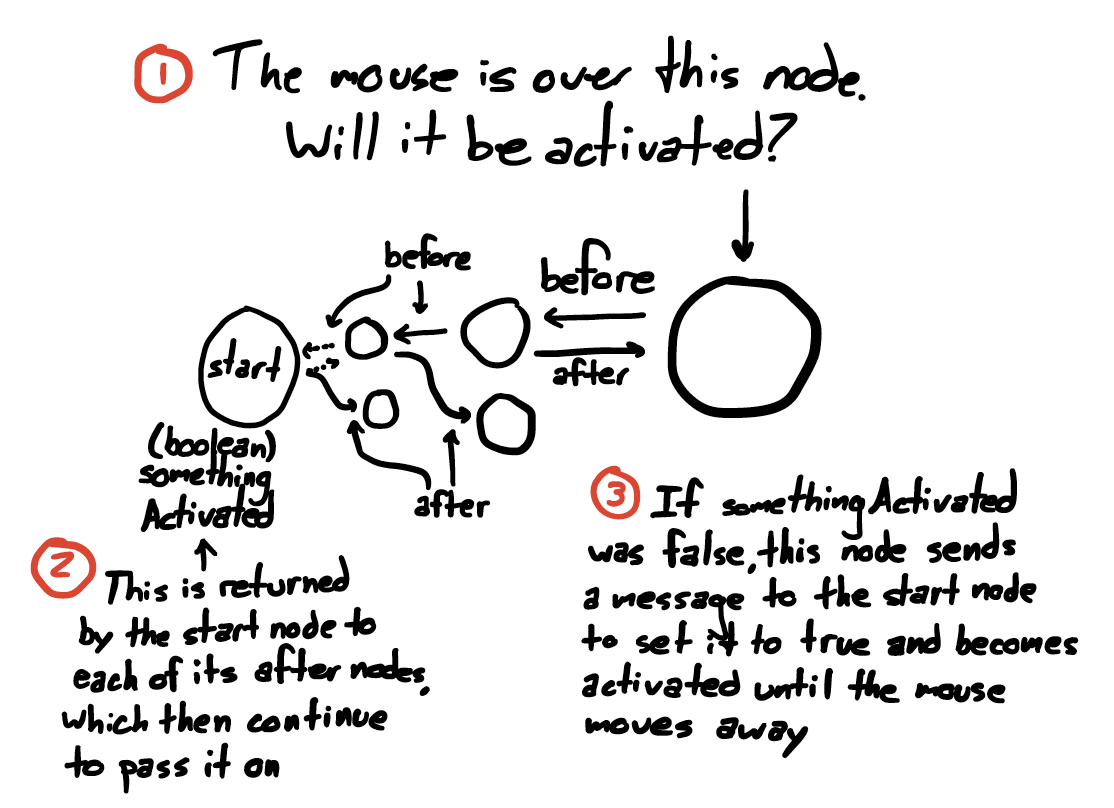 1 The mouse is over this node.
Will it be activated?
before
before
start
after
(boolean)
something
Activated
after
2 This is returned
by the start node to
each of its after nodes,
which then continue
to pass it on
3 If somethingActivated
was false, this node sends
a message to the start node
to set it to true and becomes
activated until the mouse
moves away